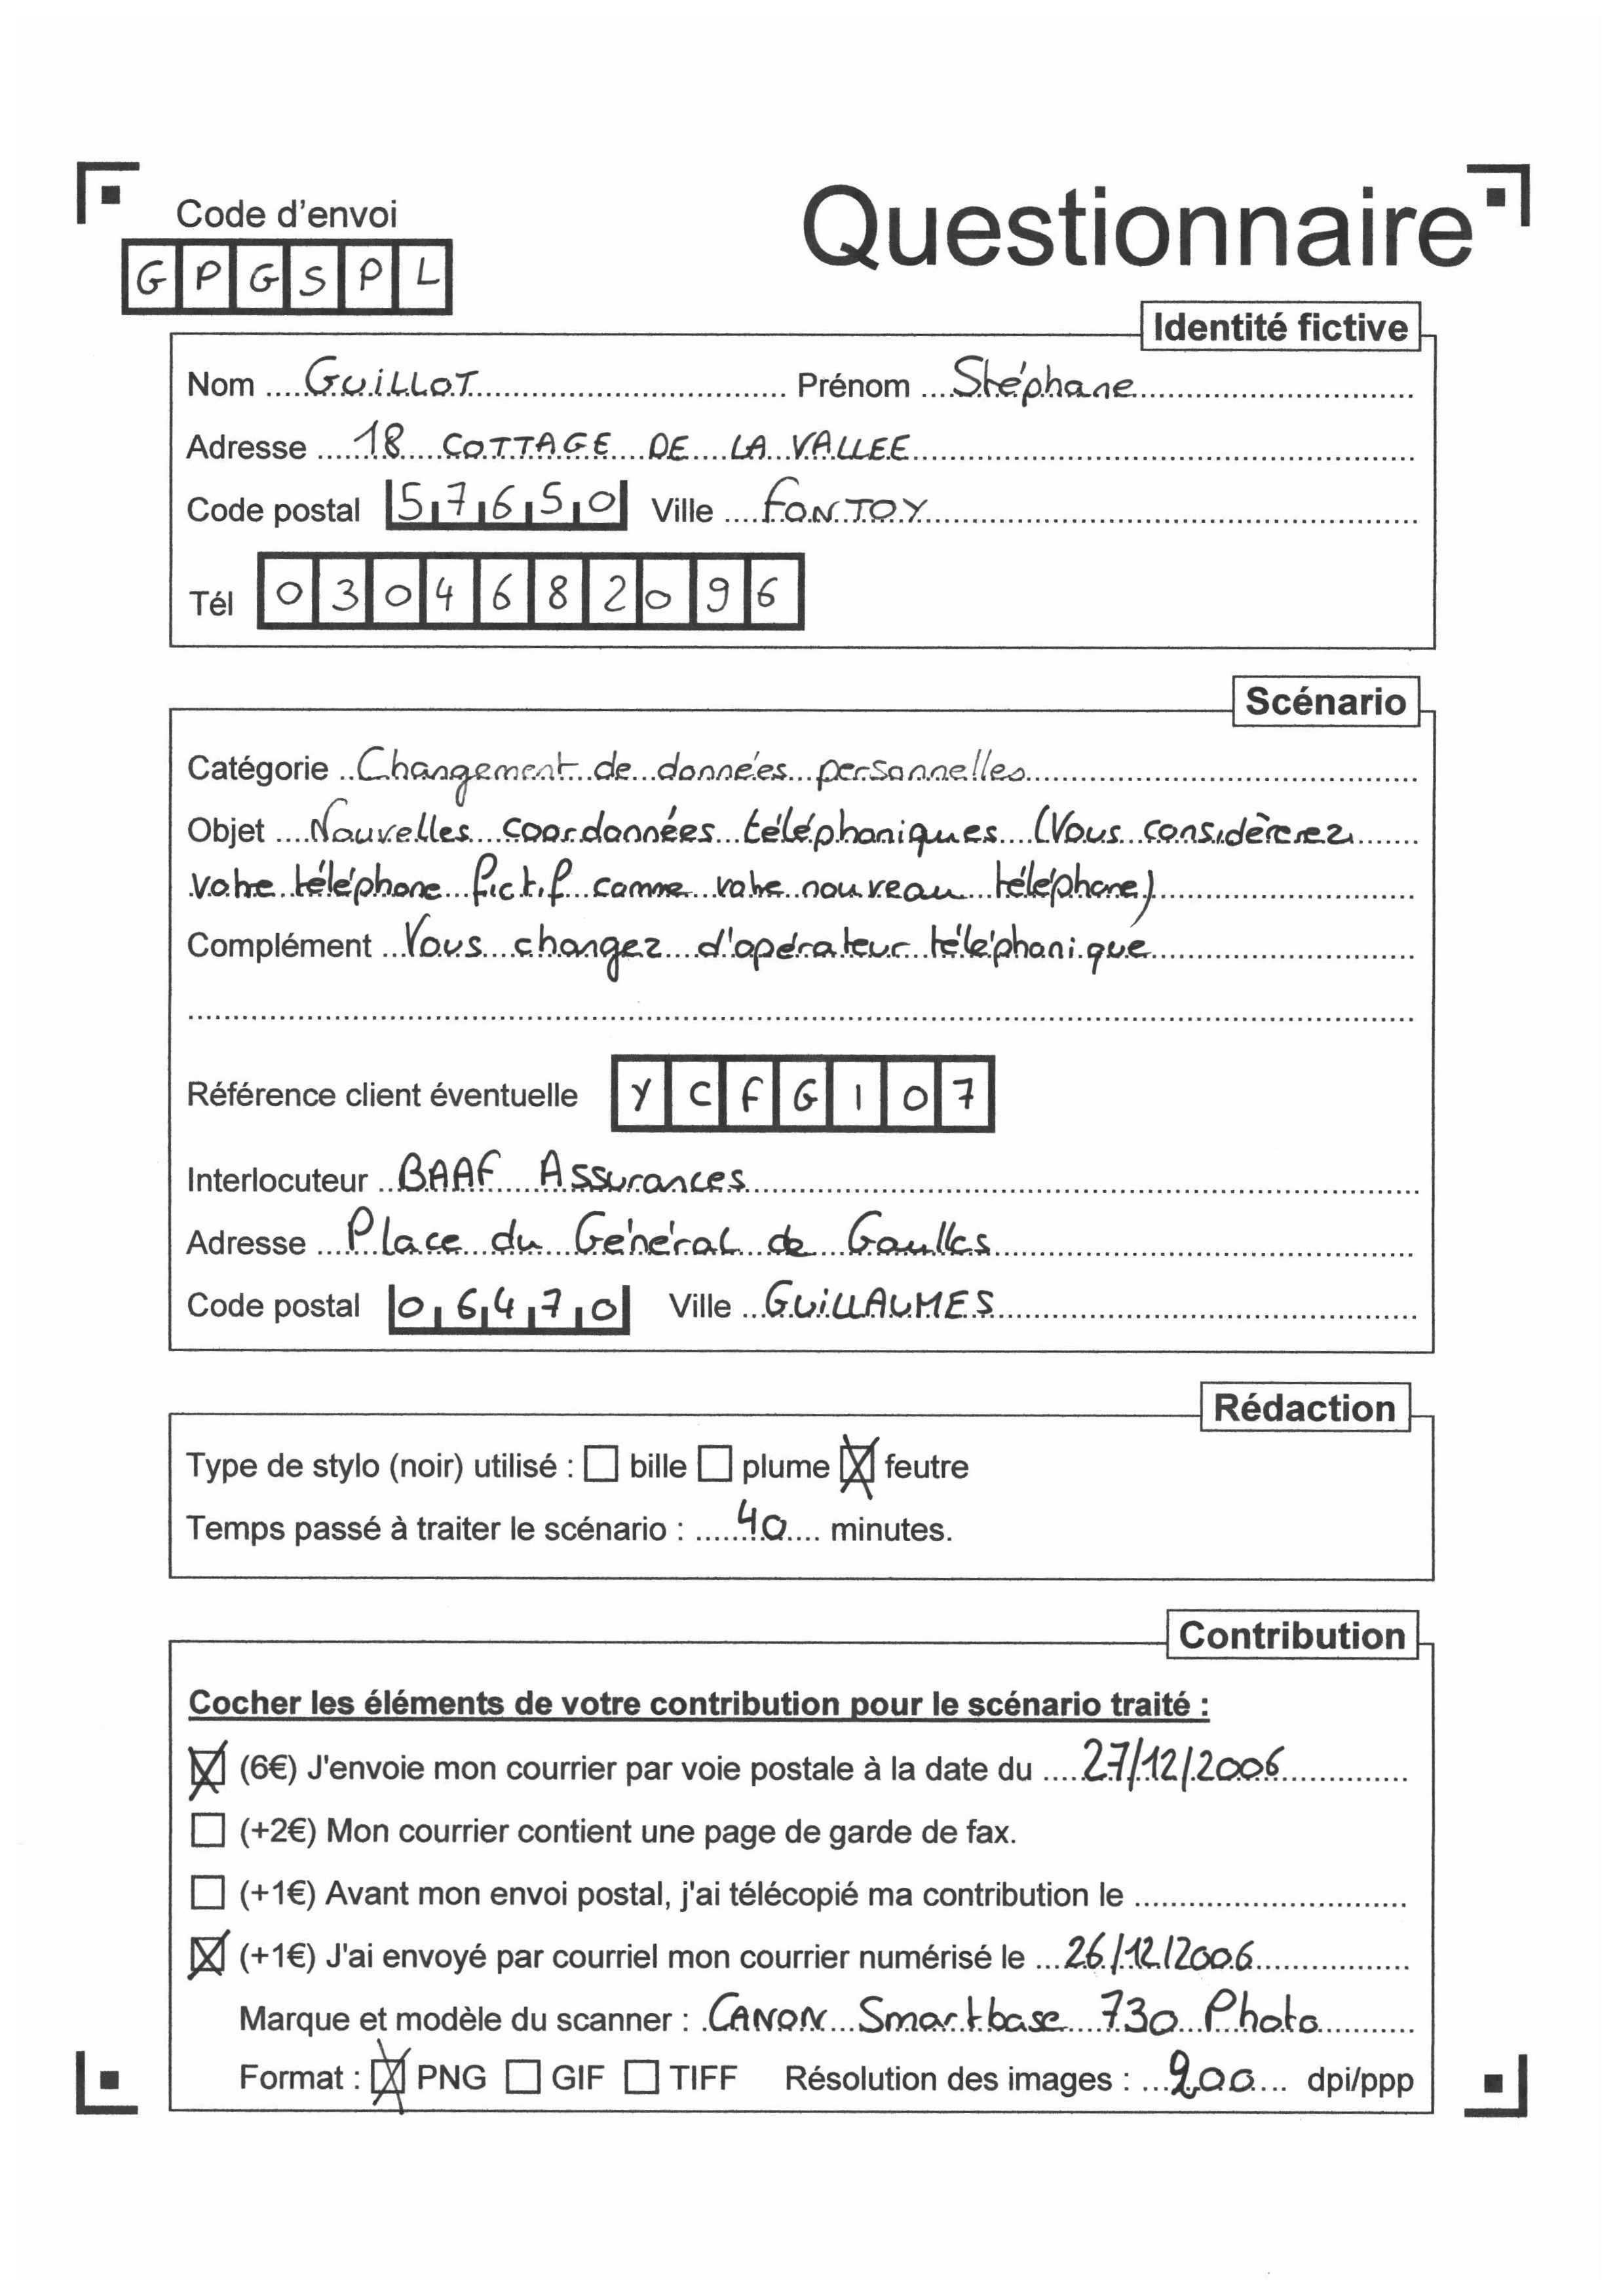 Code d'envoi
Questionnaire
GPGSPL
Identité fictive
Nom GUILLOT Prénom Stéphane
Adresse 18 COTTAGE DE LA VALLEE
Code postal 57650 Ville FONTOY
Tél 0304682096
Scénario
Catégorie Changement de données personnelles
Objet Nouvelles coordonnées téléphoniques (Vous considèrerez
votre téléphone fictif comme votre nouveau téléphone)
Complément Vous changez d'opérateur téléphonique
Référence client éventuelle YCFG107
Interlocuteur BAAF Assurances
Adresse Place du Général de Gaulles
Code postal 06470 Ville GUILLAUMES
Rédaction
Type de stylo (noir) utilisé : bille plume feutre
Temps passé à traiter le scénario : 40 minutes.
Contribution
Cocher les éléments de votre contribution pour le scénario traité :
(6€) J'envoie mon courrier par voie postale à la date du 27/12/2006
(+2€) Mon courrier contient une page de garde de fax.
(+1€) Avant mon envoi postal, j'ai télécopié ma contribution le
(+1€) J'ai envoyé par courriel mon courrier numérisé le 26/12/2006
Marque et modèle du scanner : CANON Smartbase 730 Photo
Format : PNG GIF TIFF Résolution des images : 200 dpi/ppp